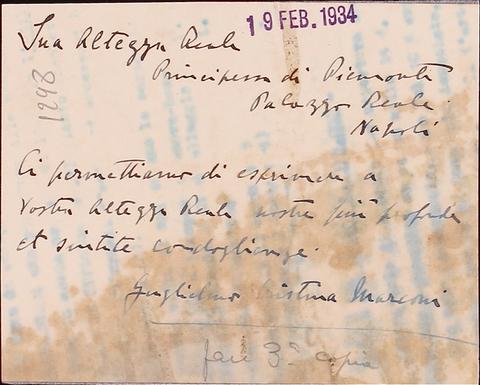 19 FEB. 1934
Sua Altezza Reale
Principessa di Piemonte
Palazzo Reale.
Napoli
1298
Ci permettiamo di esprimere a
Vostra Altezza Reale nostre più profonde
et sentite condoglianze.
Guglielmo Cristina Marconi
fare 3ª copia